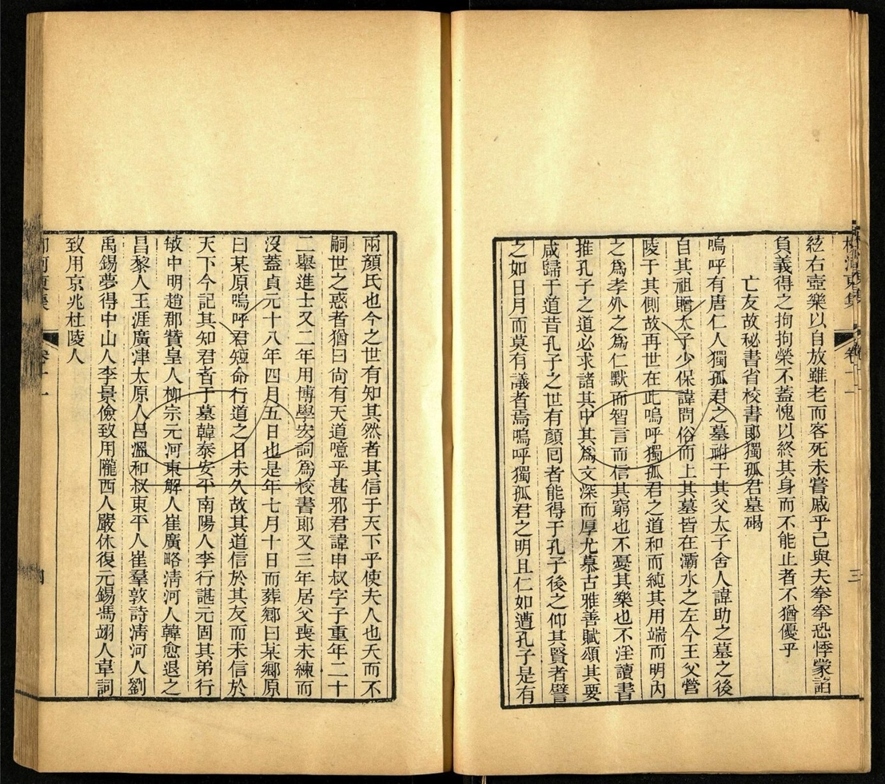 絃右壺樂以自放雖老而客死未嘗戚乎己與夫拳拳恐悸蒙詬
負義得之拘拘榮不蓋愧以終其身而不能止者不猶優乎
亡友故秘書省校書郎獨孤君墓碣
嗚呼有唐仁人獨孤君之墓祔于其父太子舍人諱助之墓之後
自其祖贈太子少保諱問俗而上其墓皆在灞水之左今王父營
陵于其側故再世在此嗚呼獨孤君之道和而純其用端而明內
之爲孝外之爲仁默而智言而信其窮也不憂其樂也不淫讀書
推孔子之道必求諸其中其爲文深而厚尤慕古雅善賦頌其要
咸歸于道昔孔子之世有顏囘者能得于孔子後之仰其賢者譬
之如日月而莫有議者焉嗚呼獨孤君之明且仁如遭孔子是有
兩顏氏也今之世有知其然者其信于天下乎使夫人也夭而不
嗣世之惑者猶曰尙有天道噫乎甚邪君諱申叔字子重年二十
二舉進士又二年用博學宏詞爲校書郎又三年居父喪未練而
沒蓋貞元十八年四月五日也是年七月十日而葬鄉曰某鄉原
曰某原嗚呼君短命行道之日未久故其道信於其友而未信於
天下今記其知君者于墓韓泰安平南陽人李行諶元固其弟行
敏中明趙郡贊皇人柳宗元河東解人崔廣略淸河人韓愈退之
昌黎人王涯廣津太原人呂溫和叔東平人崔羣敦詩淸河人劉
禹錫夢得中山人李景儉致用隴西人嚴休復元錫馮翊人韋詞
致用京兆杜陵人
卷十一